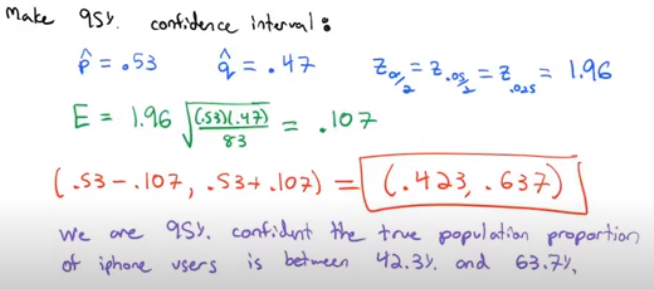 Make 95%. confidence interval:
p̂ = .53 q̂ = .47 z_{α/2} = z_{.05/2} = z_{.025} = 1.96
E = 1.96 √((.53)(.47)/83) = .107
(.53-.107, .53+.107) = (.423, .637)
We are 95%. confident the true population proportion
of iphone users is between 42.3%. and 63.7%.